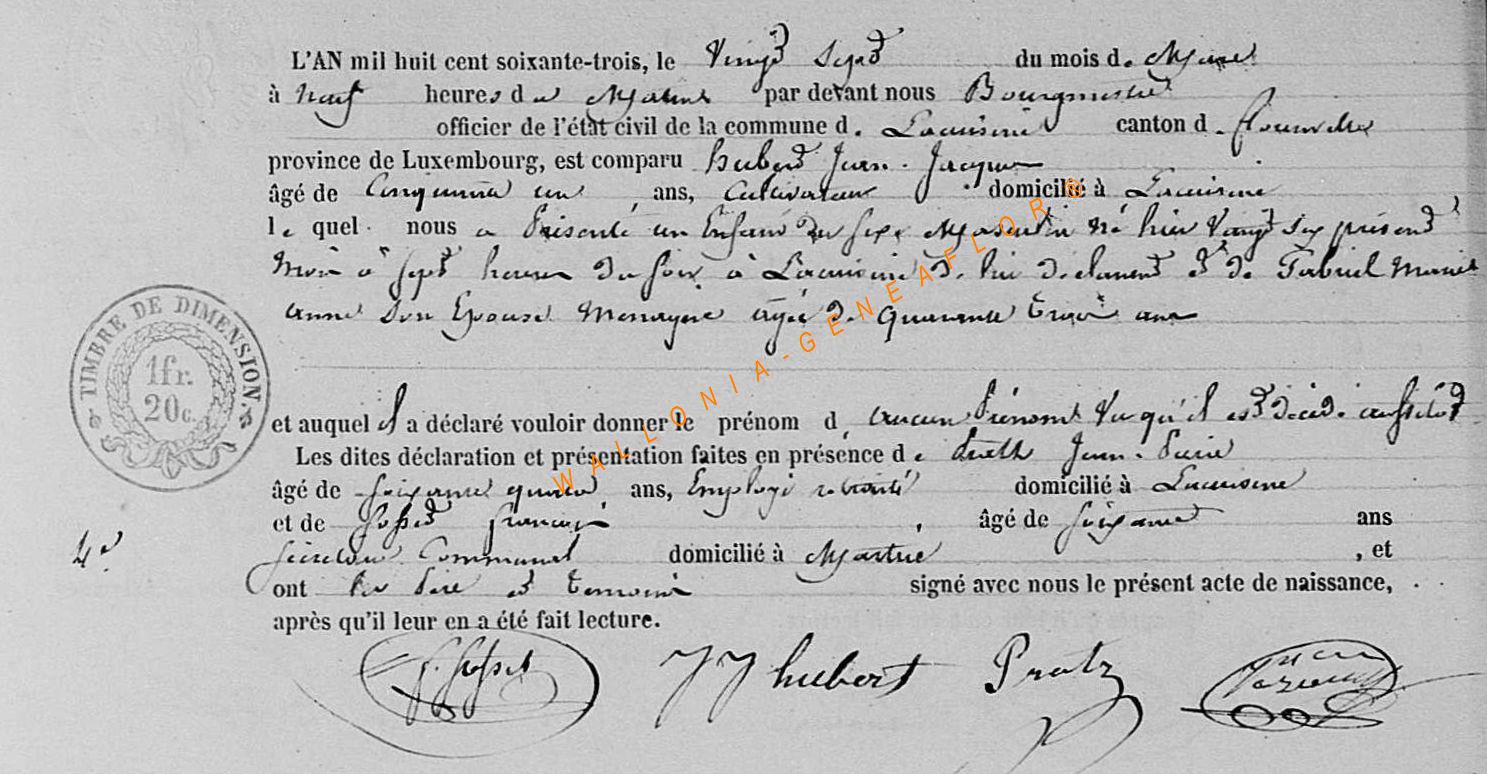 L'AN mil huit cent soixante-trois, le Vingt Sept du mois de Mars
à Neuf heures du Matin par devant nous Bourgmestre
officier de l'état civil de la commune d. Lacuisine canton d. florenville
province de Luxembourg, est comparu hubert Jean-Jacques
âgé de Cinquante un ans, Cultivateur domicilié à Lacuisine
le quel nous a Présenté un Enfant du sexe Masculin Né hier Vingt six présent
Mois à sept heures du soir à Lacuisine de lui déclarant et de Gabriel Marie
anne Son Epouse Menagère agée de quarante trois ans
TIMBRE DE DIMENSION.
1fr.
20c.
et auquel il a déclaré vouloir donner le prénom d, aucun Prénom Vu qu'il est décédé aussitôt
Les dites déclaration et présentation faites en présence de Jean-
âgé de soixante quatre ans, Employé retraité domicilié à Lacuisine
et de Gosset françois, âgé de soixante ans
Secrétaire Communal domicilié à Martué, et
ont les Père et temoins signé avec nous le présent acte de naissance,
après qu'il leur en a été fait lecture.
Gosset JJ hubert Pratz
WALLONIA-GENEAFLOR®